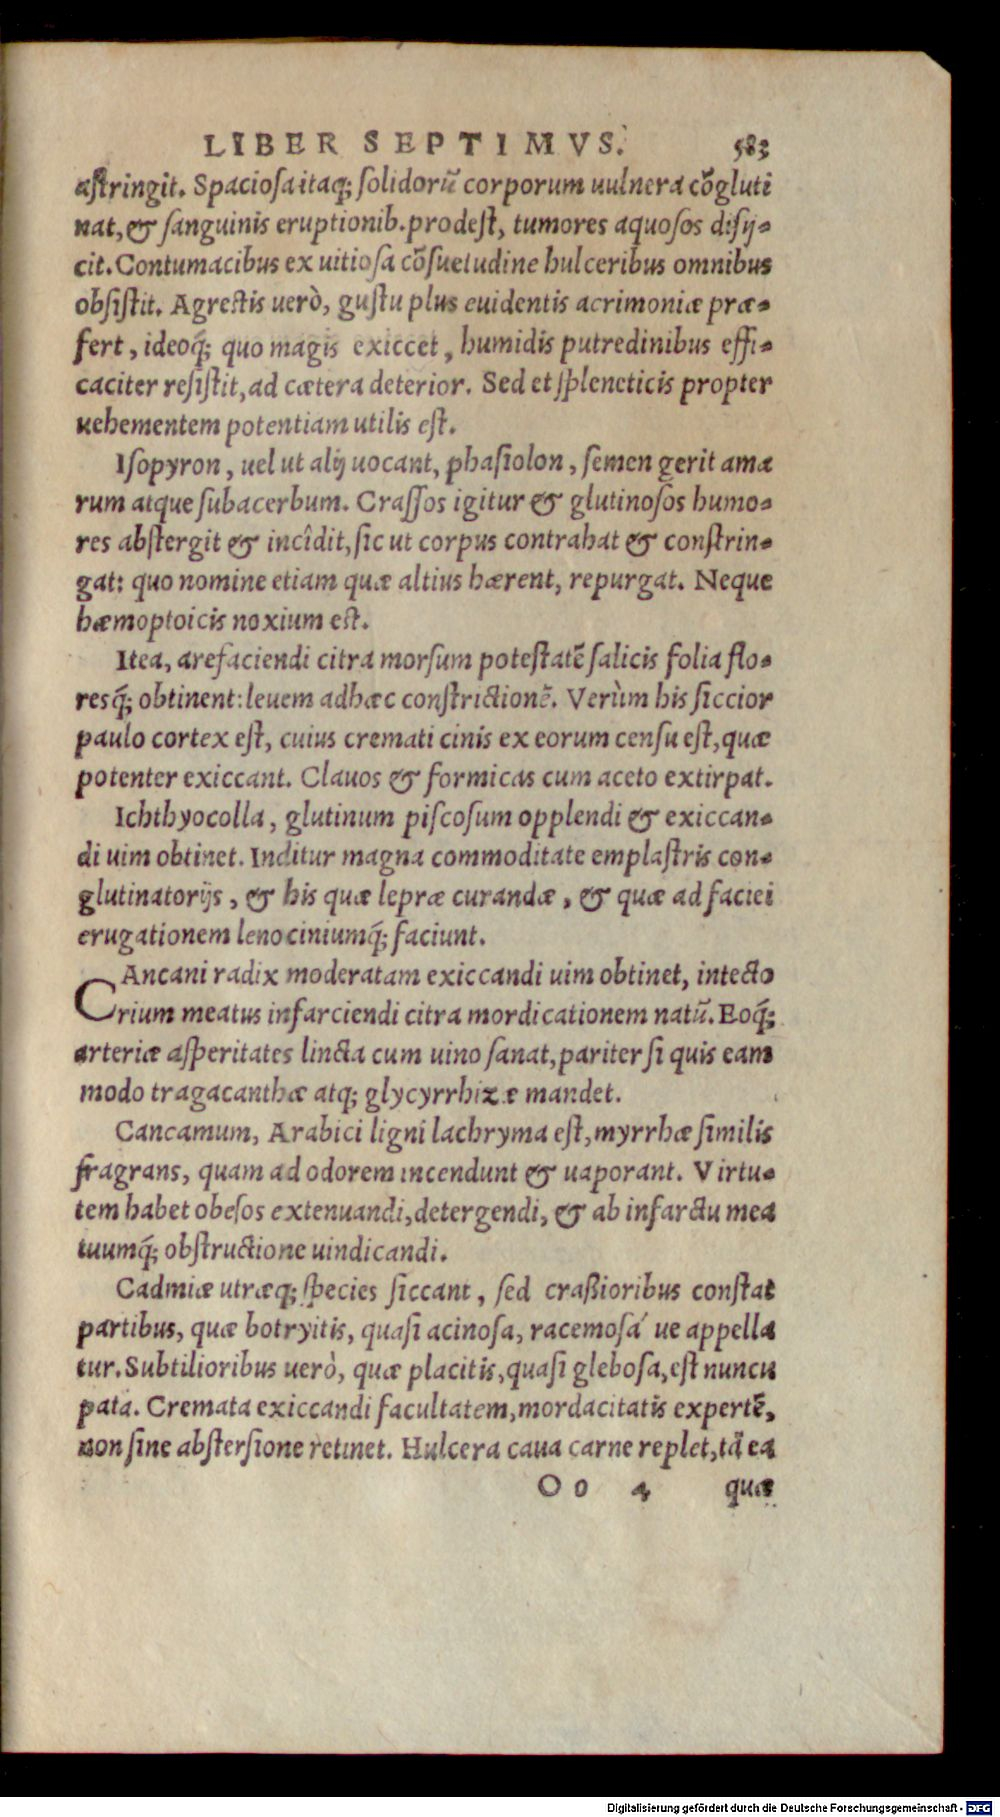 LIBER SEPTIMVS. 583
astringit. Spaciosa itaq; solidorū corporum uulnera cōgluti
nat, & sanguinis eruptionib. prodest, tumores aquosos disij-
cit. Contumacibus ex uitiosa cōsuetudine hulceribus omnibus
obsistit. Agrestis uerò, gustu plus euidentis acrimoniæ præ-
fert, ideoq́; quo magis exiccet, humidis putredinibus effi-
caciter resistit, ad cætera deterior. Sed et spleneticis propter
uehementem potentiam utilis est.
Isopyron, uel ut alij uocant, phasiolon, semen gerit ama
rum atque subacerbum. Crassos igitur & glutinosos humo-
res abstergit & incîdit, sic ut corpus contrahat & constrin-
gat: quo nomine etiam quæ altius hærent, repurgat. Neque
hæmoptoicis noxium est.
Itea, arefaciendi citra morsum potestatē salicis folia flo-
resq́; obtinent: leuem adhæc constrictionē. Verùm his siccior
paulo cortex est, cuius cremati cinis ex eorum censu est, quæ
potenter exiccant. Clauos & formicas cum aceto extirpat.
Ichthyocolla, glutinum piscosum opplendi & exiccan-
di uim obtinet. Inditur magna commoditate emplastris con-
glutinatorijs, & his quæ lepræ curandæ, & quæ ad faciei
erugationem lenociniumq́; faciunt.
CAncani radix moderatam exiccandi uim obtinet, intecto
rium meatus infarciendi citra mordicationem natū. Eoq́;
arteriæ asperitates lincta cum uino sanat, pariter si quis eam
modo tragacanthæ atq; glycyrrhizæ mandet.
Cancamum, Arabici ligni lachryma est, myrrhæ similis
fragrans, quam ad odorem incendunt & uaporant. Virtu-
tem habet obesos extenuandi, detergendi, & ab infarctu mea
tuumq́; obstructione uindicandi.
Cadmiæ utræq; species siccant, sed craßioribus constat
partibus, quæ botryitis, quasi acinosa, racemosá ue appella
tur. Subtilioribus uerò, quæ placitis, quasi glebosa, est nuncu
pata. Cremata exiccandi facultatem, mordacitatis expertē,
non sine abstersione retinet. Hulcera caua carne replet, tā ea
Oo 4 quæ
Digitalisierung gefördert durch die Deutsche Forschungsgemeinschaft - DFG